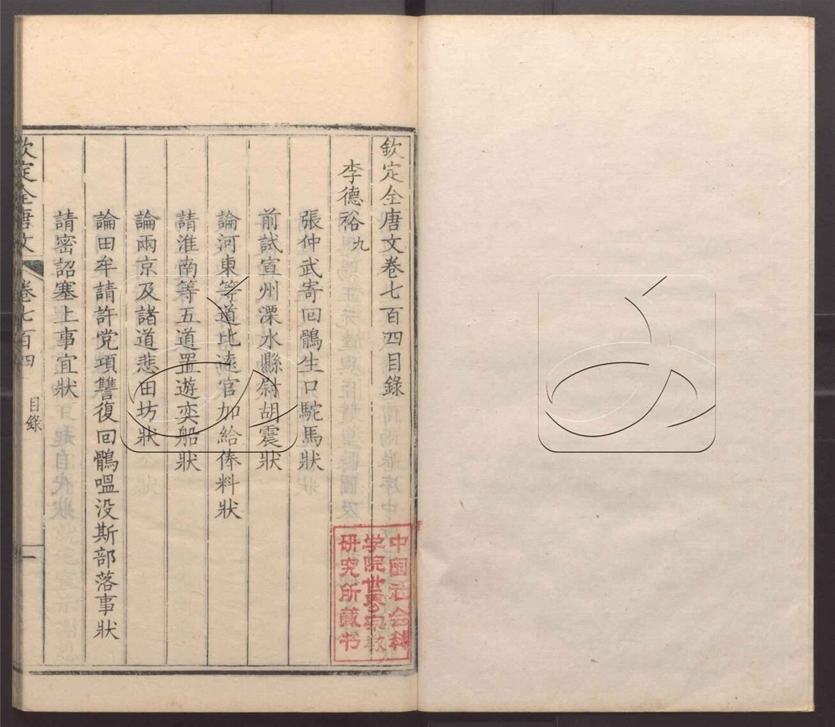 欽定全唐文卷七百四目錄
李德裕九
張仲武寄回鶻生口駝馬狀
前試宣州溧水縣尉胡震狀
論河東等道比遠官加給俸料狀
請淮南等五道置遊奕船狀
論兩京及諸道悲田坊狀
論田牟請許党項讐復回鶻嗢没斯部落事狀
請密詔塞上事宜狀
欽定全唐文 卷七百四 目錄 一
中国社会科
学院世界宗教
研究所藏书